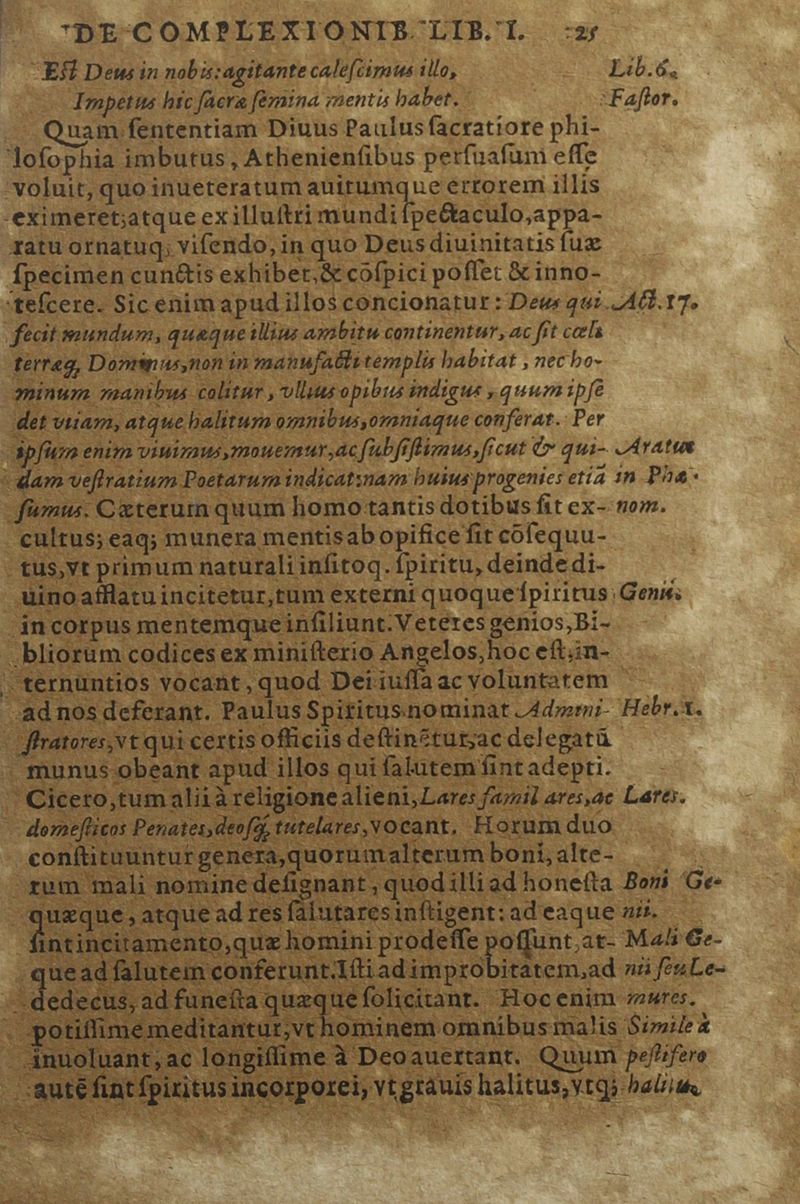 DE COMPLEXIONIB. LIB. I. 25
Est Deus in nobis: agitante calescimus illo, Lib. 6.
Impetus hic sacræ semina mentis habet. Fastor.
Quam sententiam Diuus Paulus sacratiore phi-
losophia imbutus, Atheniensibus persuasum esse
voluit, quo inueteratum auitumque errorem illis
eximeret; atque ex illustri mundi spectaculo, appa-
ratu ornatuq; visendo, in quo Deus diuinitatis suæ
specimen cunctis exhibet, & cōspici posset & inno-
tescere. Sic enim apud illos concionatur: Deus qui Act. 17.
fecit mundum, quæque illius ambitu continentur, ac sit cœli
terræq; Dominus, non in manufactis templis habitat, nec ho-
minum manibus colitur, vllius opibus indigus, quum ipse
det vitam, atque halitum omnibus, omniaque conferat. Per
ipsum enim viuimus, mouemur, ac subsistimus, sicut & qui- Aratus
dam vestratium Poetarum indicat: nam huius progenies etiā in Phæ-
sumus. Cæterum quum homo tantis dotibus sit ex- nom.
cultus; eaq; munera mentis ab opifice sit cōsequu-
tus, vt primum naturali insitoq. spiritu, deinde di-
uino afflatu incitetur, tum externi quoque spiritus Genii.
in corpus mentemque insiliunt. Veteres genios, Bi-
bliorum codices ex ministerio Angelos, hoc est, in-
ternuntios vocant, quod Dei iussa ac voluntatem
ad nos deferant. Paulus Spiritus nominat Admini- Hebr. 1.
stratores, vt qui certis officiis destinētur, ac delegatū
munus obeant apud illos qui salutem sint adepti.
Cicero, tum alii à religione alieni, Lares familiares, ac Lares.
domesticos Penates, deosq; tutelares, vocant. Horum duo
constituuntur genera, quorum alterum boni, alte-
rum mali nomine designant, quod illi ad honesta Boni Ge-
quæque, atque ad res salutares instigent: ad eaque nii.
sint incitamento, quæ homini prodesse possunt, at- Mali Ge-
que ad salutem conferunt. Isti ad improbitatem, ad nii seu Le-
dedecus, ad funesta quæque solicitant. Hoc enim mures.
potissime meditantur, vt hominem omnibus malis Simile à
inuoluant, ac longissime à Deo auertant. Quum pestifero
autē sint spiritus incorporei, vt grauis halitus, vtq; halitu.